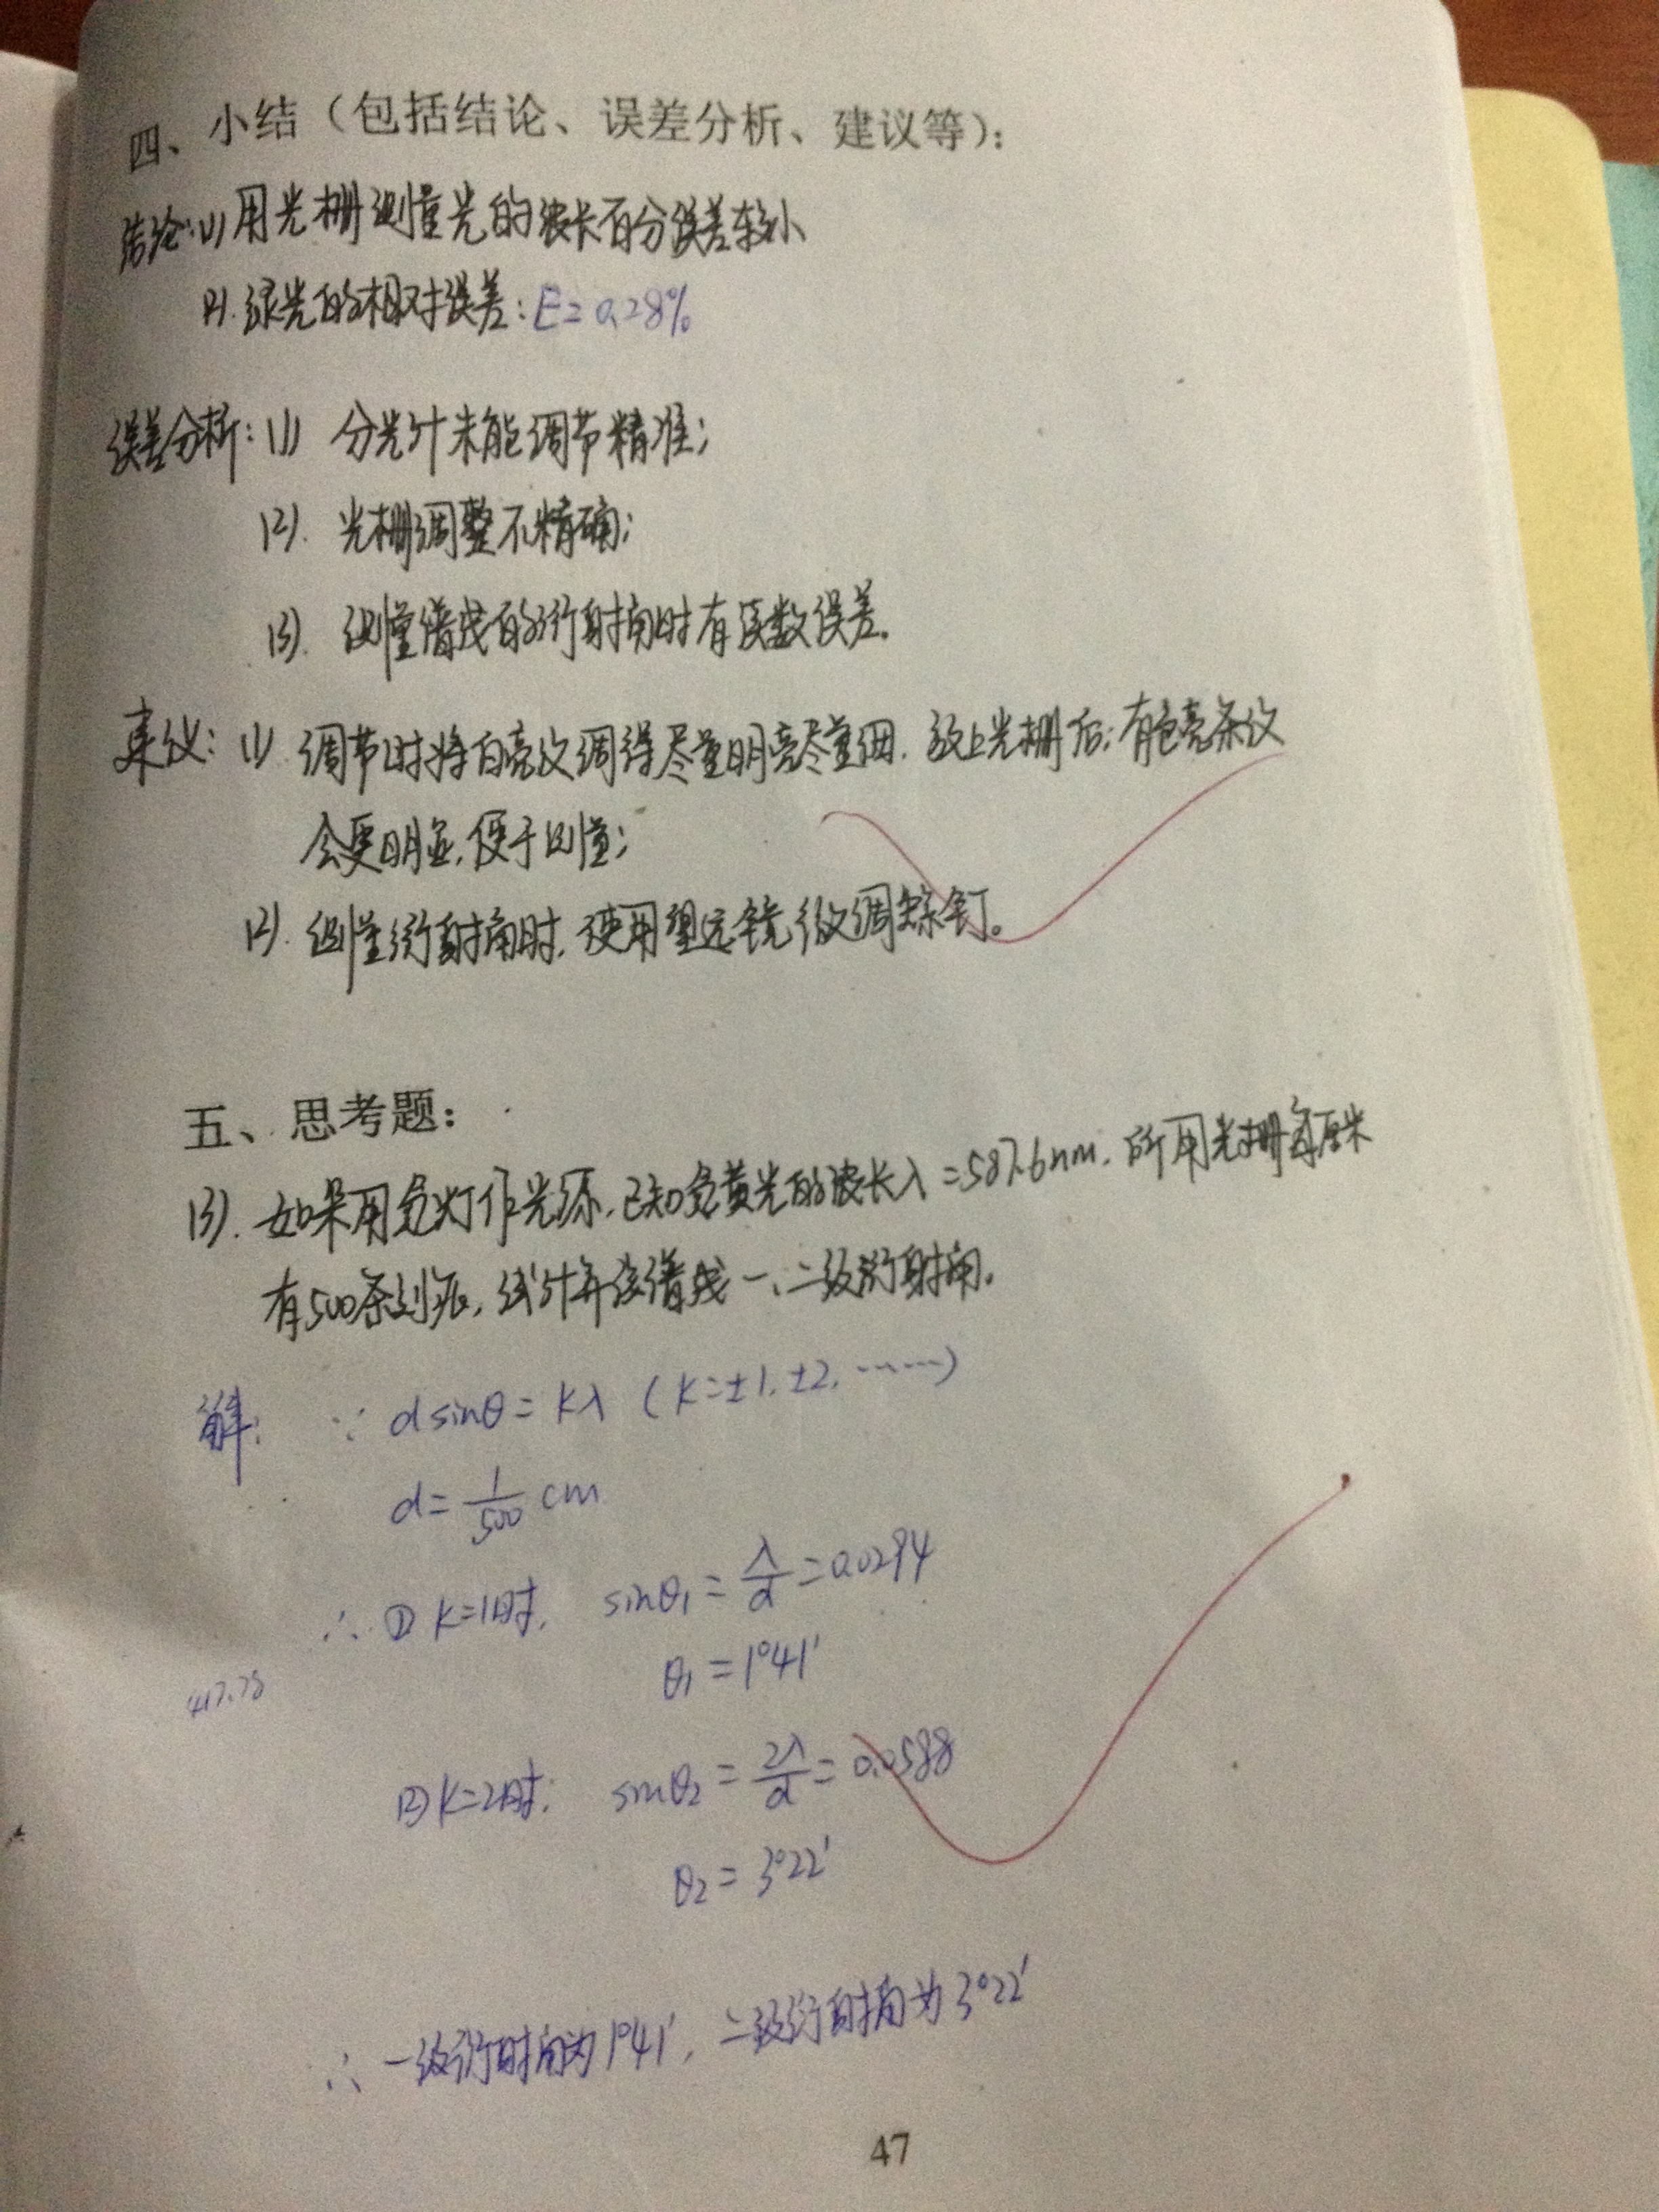 四、小结（包括结论、误差分析、建议等）：
结论：(1) 用光栅测量光的波长百分误差较小
(2). 绿光的相对误差：E=0.28%
误差分析：(1) 分光计未能调节精准；
(2). 光栅调整不精确；
(3). 测量谱线的衍射角时有读数误差。
建议：(1) 调节时将白亮纹调得尽量明亮尽量细. 放上光栅后，有色亮条纹
会更明显，便于测量；
(2). 测量衍射角时，使用望远镜微调螺钉。
五、思考题：
(3). 如果用氦灯作光源，已知氦黄光的波长λ=587.6nm. 所用光栅每厘米
有500条刻痕，试计算该谱线一、二级衍射角。
解： ∵ d sinθ = kλ (k=±1, ±2, ……)
d = 1/500 cm
∴ ① k=1时， sinθ₁ = λ/d = 0.0294
θ₁ = 1°41′
417.78
② k=2时： sinθ₂ = 2λ/d = 0.0588
θ₂ = 3°22′
∴ 一级衍射角为1°41′，二级衍射角为3°22′
47